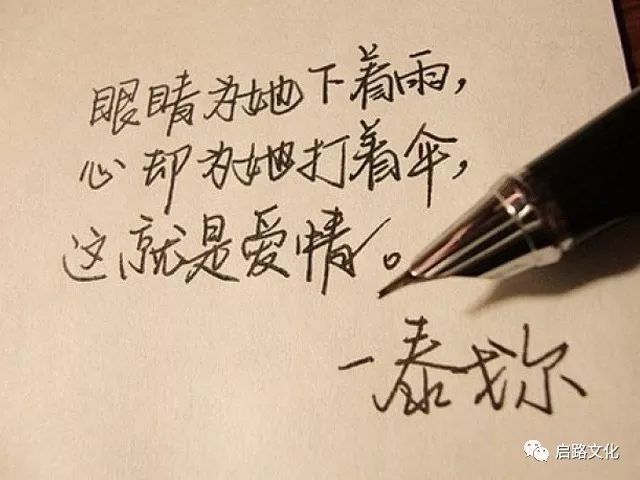 眼睛为她下着雨，
心却为她打着伞，
这就是爱情。
一泰戈尔
启路文化